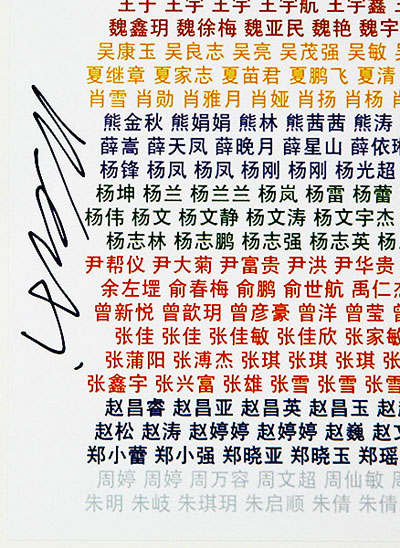 王于 王宇 王宇 王宇航 王宇鑫
魏鑫玥 魏徐梅 魏亚民 魏艳 魏宇
吴康玉 吴良志 吴亮 吴茂强 吴敏
夏继章 夏家志 夏苗君 夏鹏飞 夏清
肖雪 肖勋 肖雅月 肖娅 肖扬 肖杨 肖
熊金秋 熊娟娟 熊林 熊茜茜 熊涛
薛嵩 薛天凤 薛晚月 薛星山 薛依
杨锋 杨凤 杨凤 杨刚 杨刚 杨光超
杨坤 杨兰 杨兰兰 杨岚 杨雷 杨蕾
杨伟 杨文 杨文静 杨文涛 杨文宇杰
杨志林 杨志鹏 杨志强 杨志英 杨
尹帮仪 尹大菊 尹富贵 尹洪 尹华贵
余左堽 俞春梅 俞鹏 俞世航 禹仁杰
曾新悦 曾歆玥 曾彦豪 曾洋 曾莹 曾
张佳 张佳 张佳敏 张佳欣 张家敏
张蒲阳 张溥杰 张琪 张琪 张琪 张
张鑫宇 张兴富 张雄 张雪 张雪 张雪
赵昌睿 赵昌亚 赵昌英 赵昌玉 赵
赵松 赵涛 赵婷婷 赵婷婷 赵巍 赵文
郑小蕾 郑小强 郑晓亚 郑晓玉 郑瑶
周婷 周婷 周万容 周文超 周仙敏 周
朱明 朱岐 朱琪玥 朱启顺 朱倩 朱倩